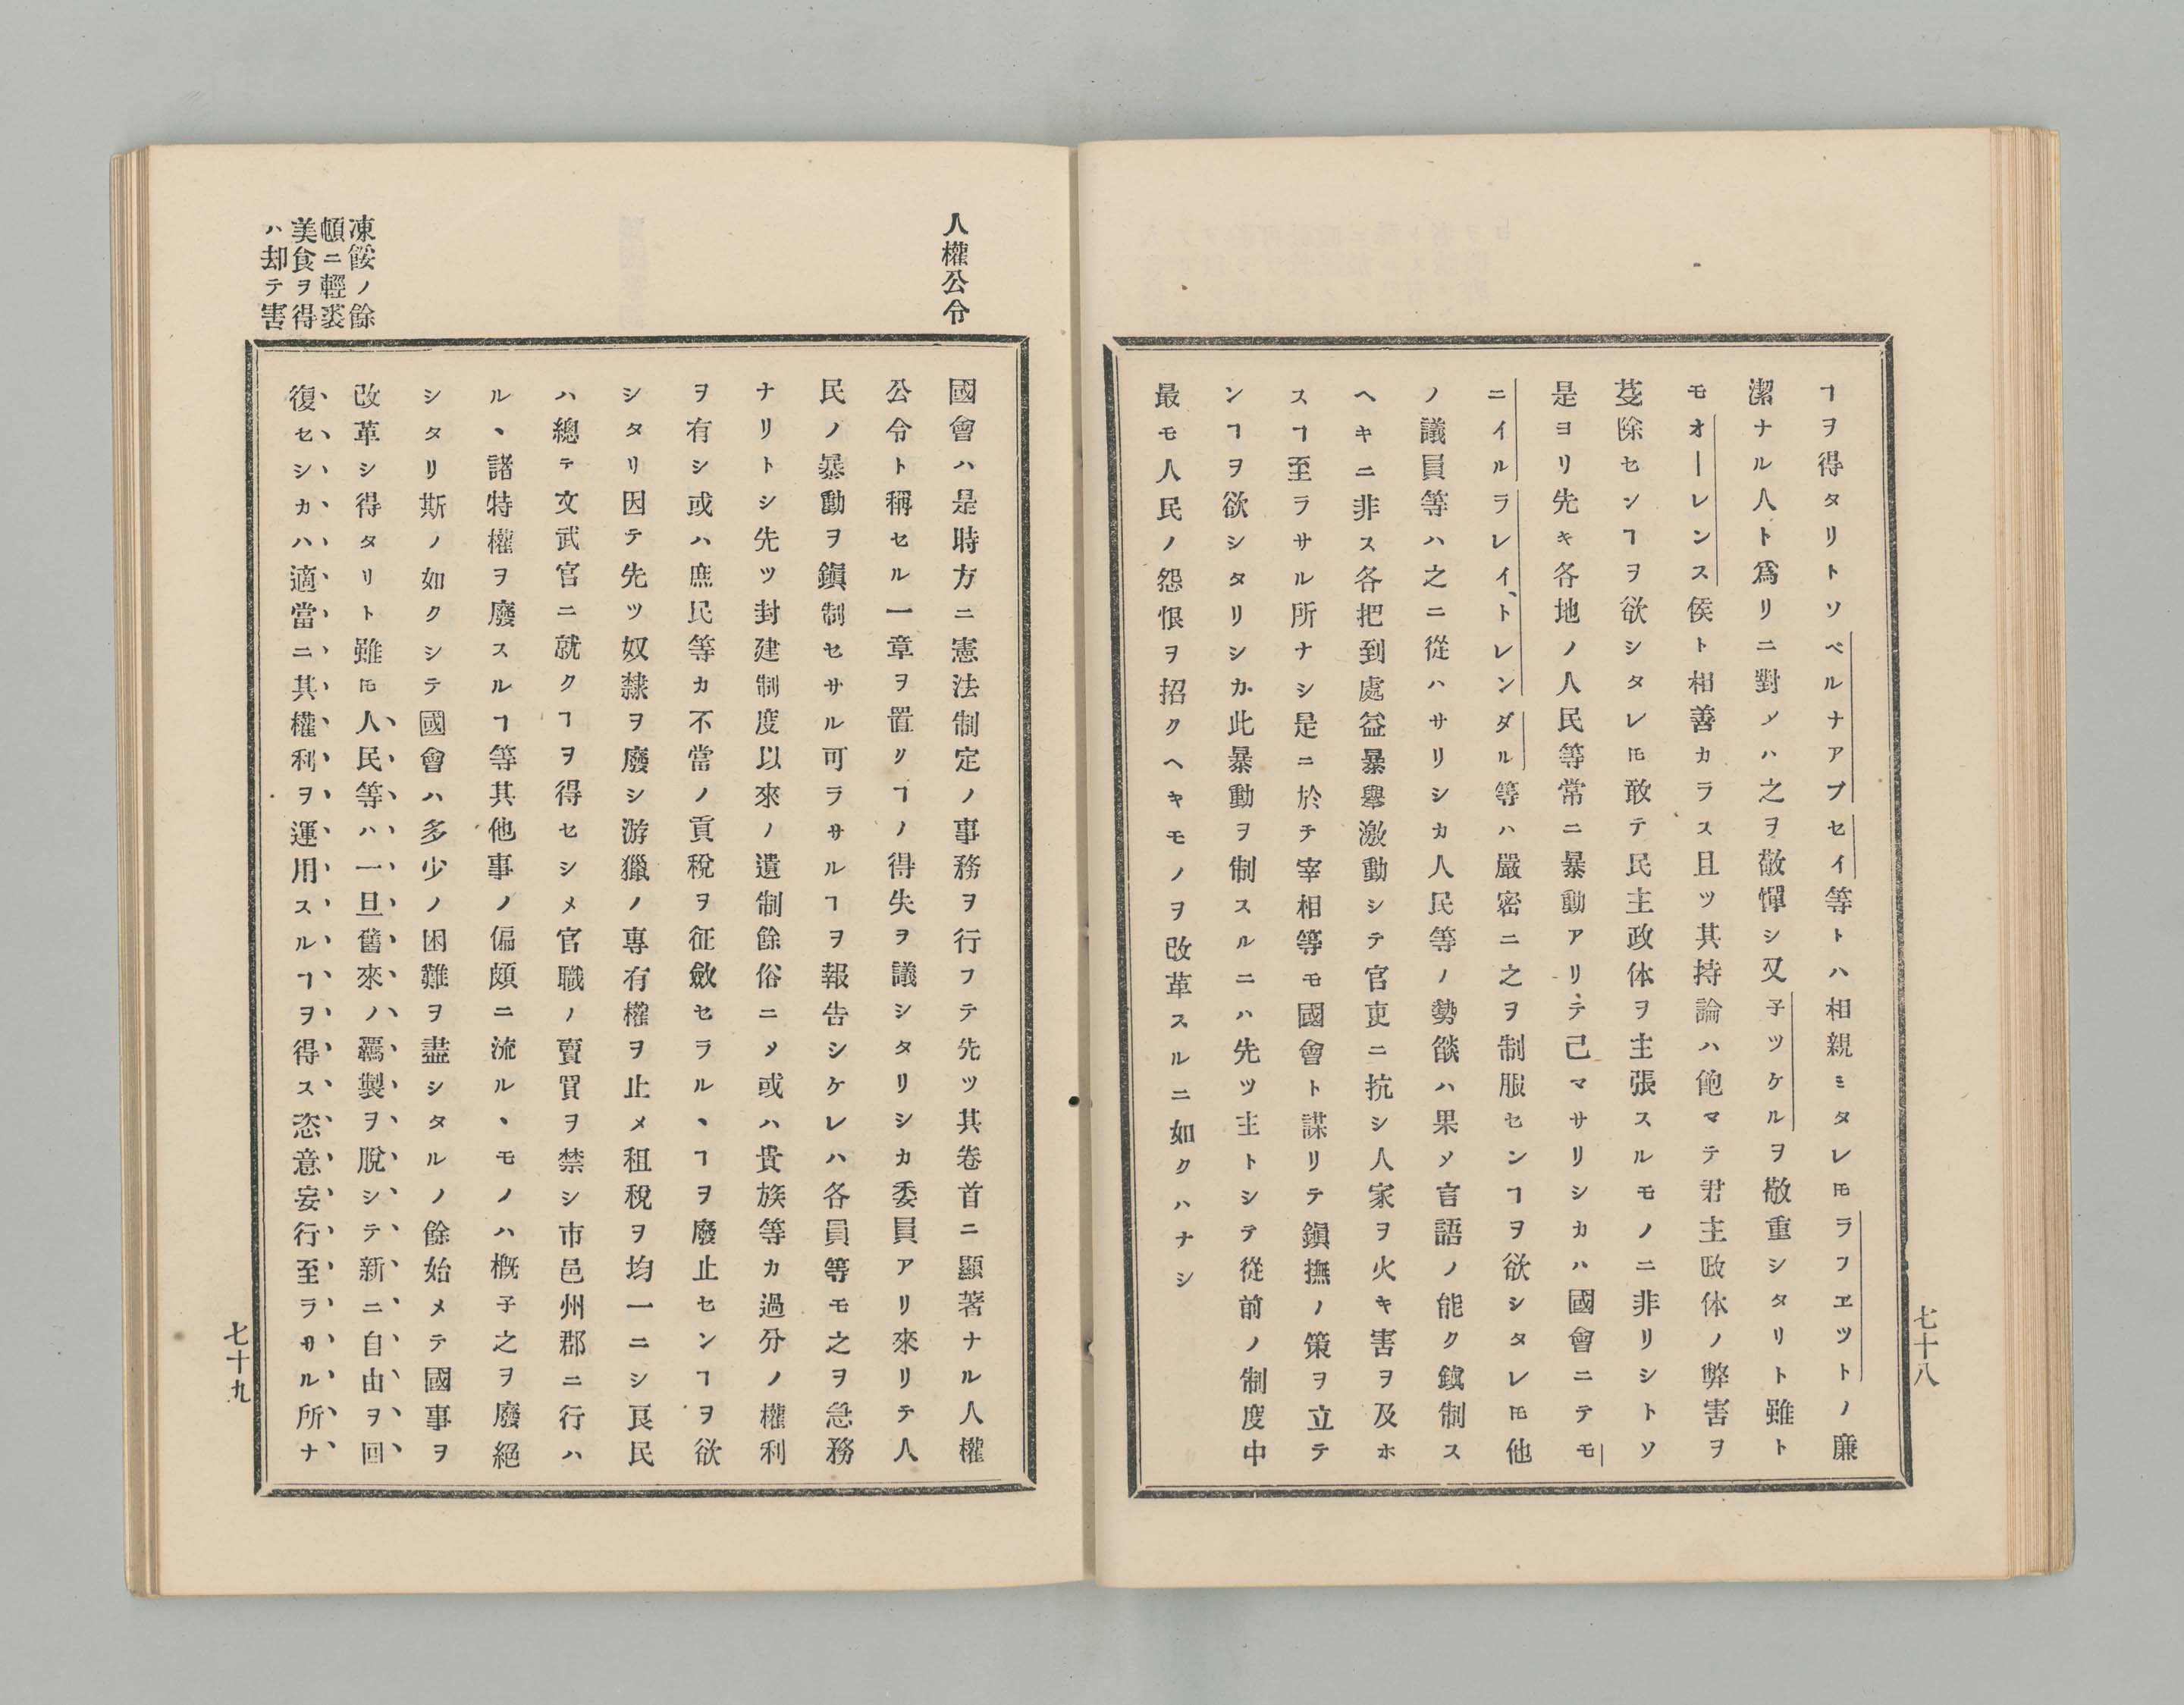 ヿヲ得タリトソベルナアブセイ等トハ相親ミタレ𪜈ラフヱツトノ廉
潔ナル人ト爲リニ對メハ之ヲ敬憚シ又子ツケルヲ敬重シタリト雖ト
モオーレンス侯ト相善カラス且ツ其持論ハ飽マテ君主政体ノ弊害ヲ
芟除センヿヲ欲シタレ𪜈敢テ民主政体ヲ主張スルモノニ非リシトソ
是ヨリ先キ各地ノ人民等常ニ暴動アリテ己マサリシカハ國會ニテモ
ニイルラレイ、トレンダル等ハ嚴密ニ之ヲ制服センヿヲ欲シタレ𪜈他
ノ議員等ハ之ニ從ハサリシカ人民等ノ勢燄ハ果メ言語ノ能ク鎭制ス
ヘキニ非ス各把到處益暴擧激動シテ官吏ニ抗シ人家ヲ火キ害ヲ及ホ
スヿ至ラサル所ナシ是ニ於テ宰相等モ國會ト謀リテ鎭撫ノ策ヲ立テ
ンヿヲ欲シタリシカ此暴動ヲ制スルニハ先ツ主トシテ從前ノ制度中
最モ人民ノ怨恨ヲ招クヘキモノヲ改革スルニ如クハナシ
七十八
人權公令
國會ハ是時方ニ憲法制定ノ事務ヲ行フテ先ツ其卷首ニ顯著ナル人權
公令ト稱セル一章ヲ置クヿノ得失ヲ議シタリシカ委員アリ來リテ人
民ノ暴動ヲ鎭制セサル可ラサルヿヲ報告シケレハ各員等モ之ヲ急務
ナリトシ先ツ封建制度以來ノ遺制餘俗ニメ或ハ貴族等カ過分ノ權利
ヲ有シ或ハ庶民等カ不當ノ貢稅ヲ征斂セラルヽヿヲ廢止センヿヲ欲
シタリ因テ先ツ奴隸ヲ廢シ游獵ノ專有權ヲ止メ租稅ヲ均一ニシ良民
ハ總テ文武官ニ就クヿヲ得セシメ官職ノ賣買ヲ禁シ市邑州郡ニ行ハ
ルヽ諸特權ヲ廢スルヿ等其他事ノ偏頗ニ流ルヽモノハ概子之ヲ廢絕
シタリ斯ノ如クシテ國會ハ多少ノ困難ヲ盡シタルノ餘始メテ國事ヲ
改革シ得タリト雖𪜈人民等ハ一旦舊來ノ羈製ヲ脫シテ新ニ自由ヲ回
復セシカハ適當ニ其權利ヲ運用スルヿヲ得ス恣意妄行至ラサル所ナ
凍餒ノ餘
頓ニ輕裘
美食ヲ得
ハ却テ害
七十九